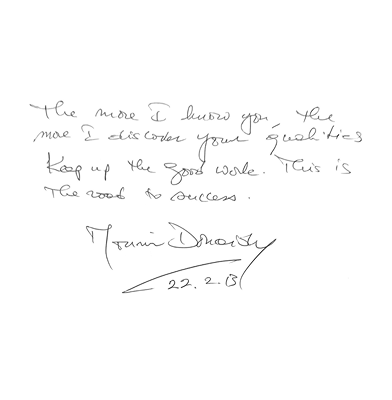 The more I know you, the
more I discover your qualities
Keep up the good work. This is
the road to success.
22.2.13